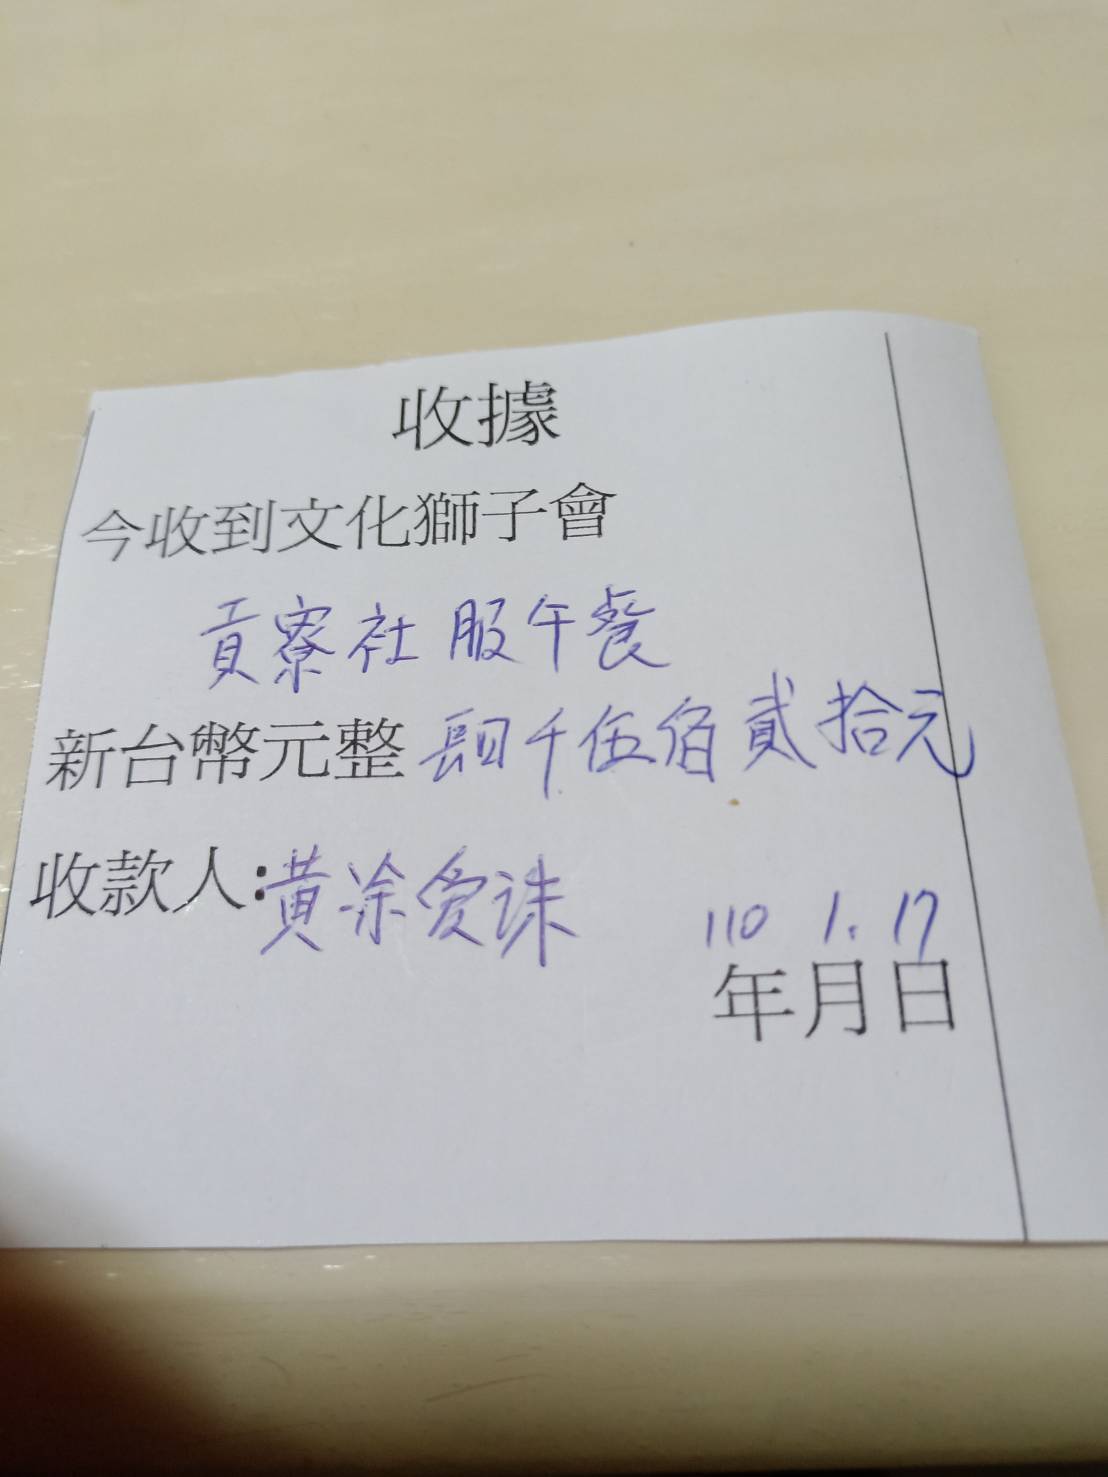 收據
今收到文化獅子會
貢寮社服午餐
新台幣元整 肆千伍佰貳拾元
收款人:黃涂愛珠
110 1. 17
年月日